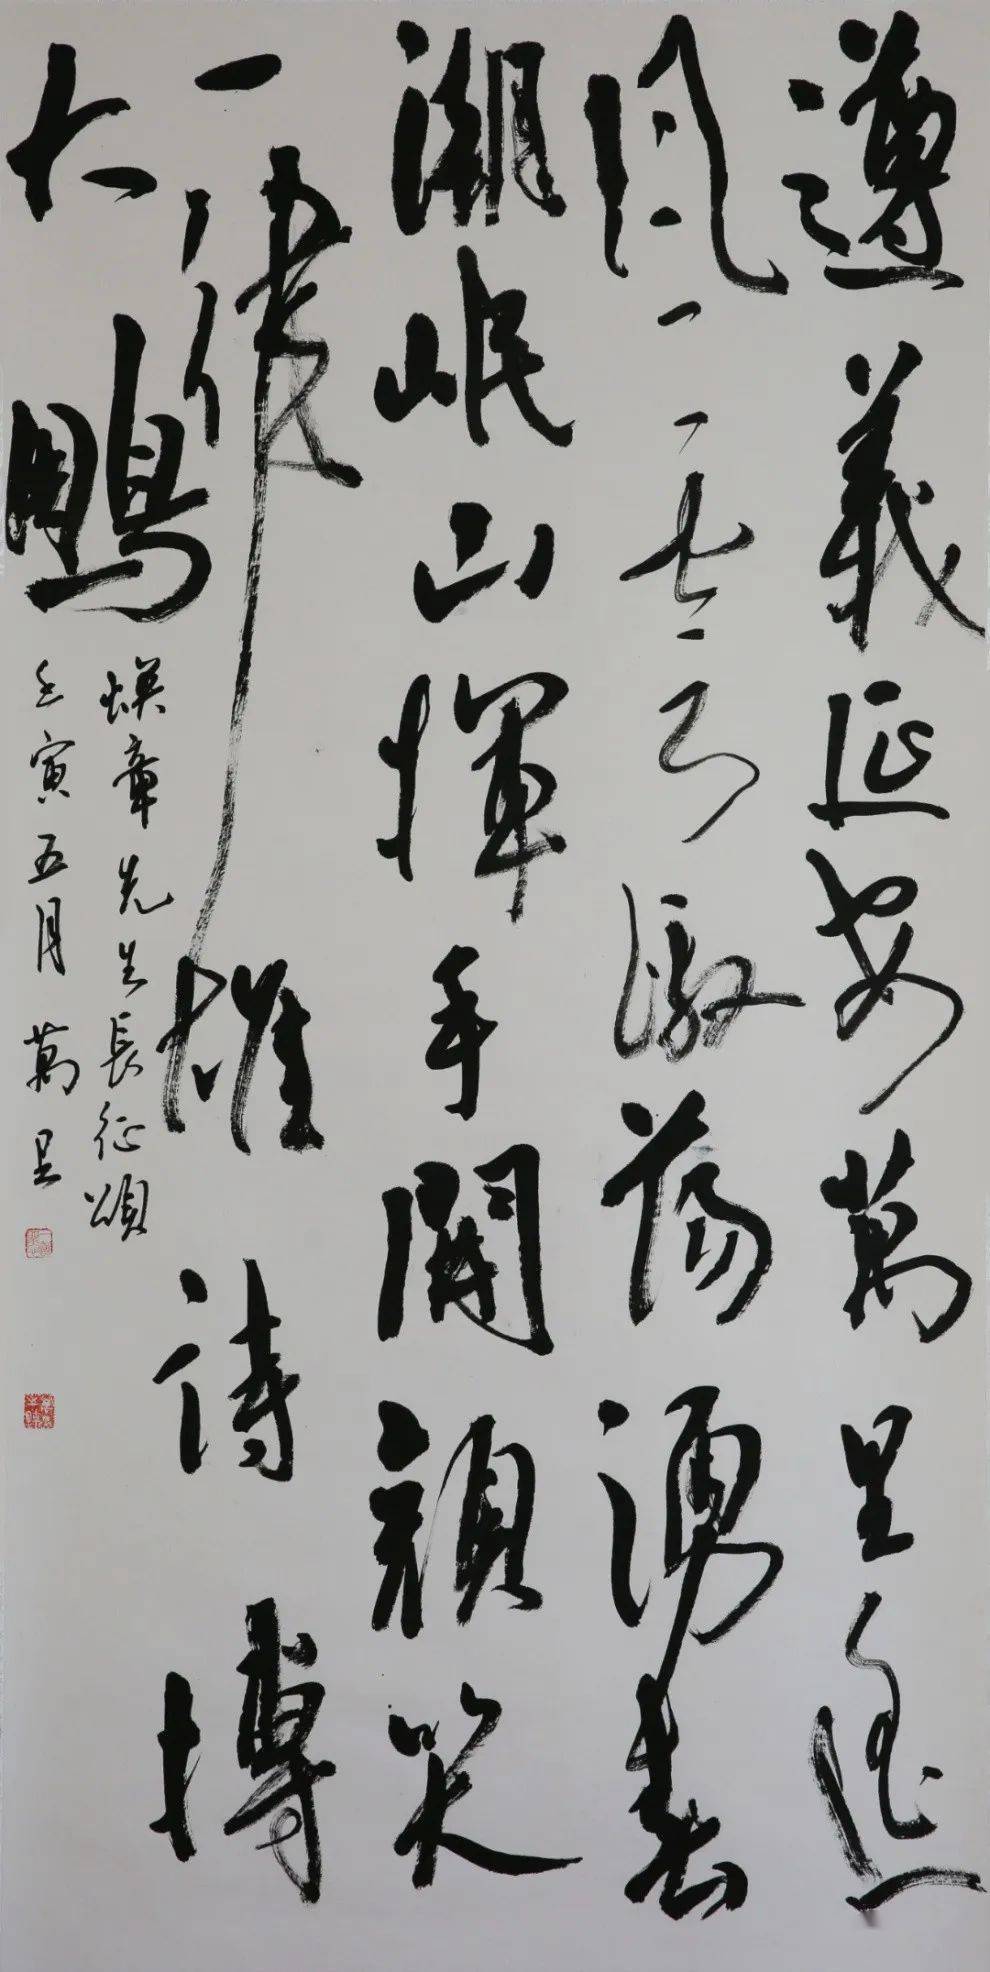 遵義延安萬里遙
風雲激蕩湧春
潮岷山揮手開顏笑
一律雄詩搏
大鵬
煥章先生長征頌
壬寅五月 萬